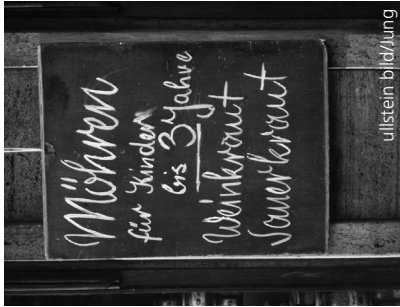 Möhren
für Kinder
bis 3 Jahre
Weinkraut
Sauerkraut
ullstein bild/Jung